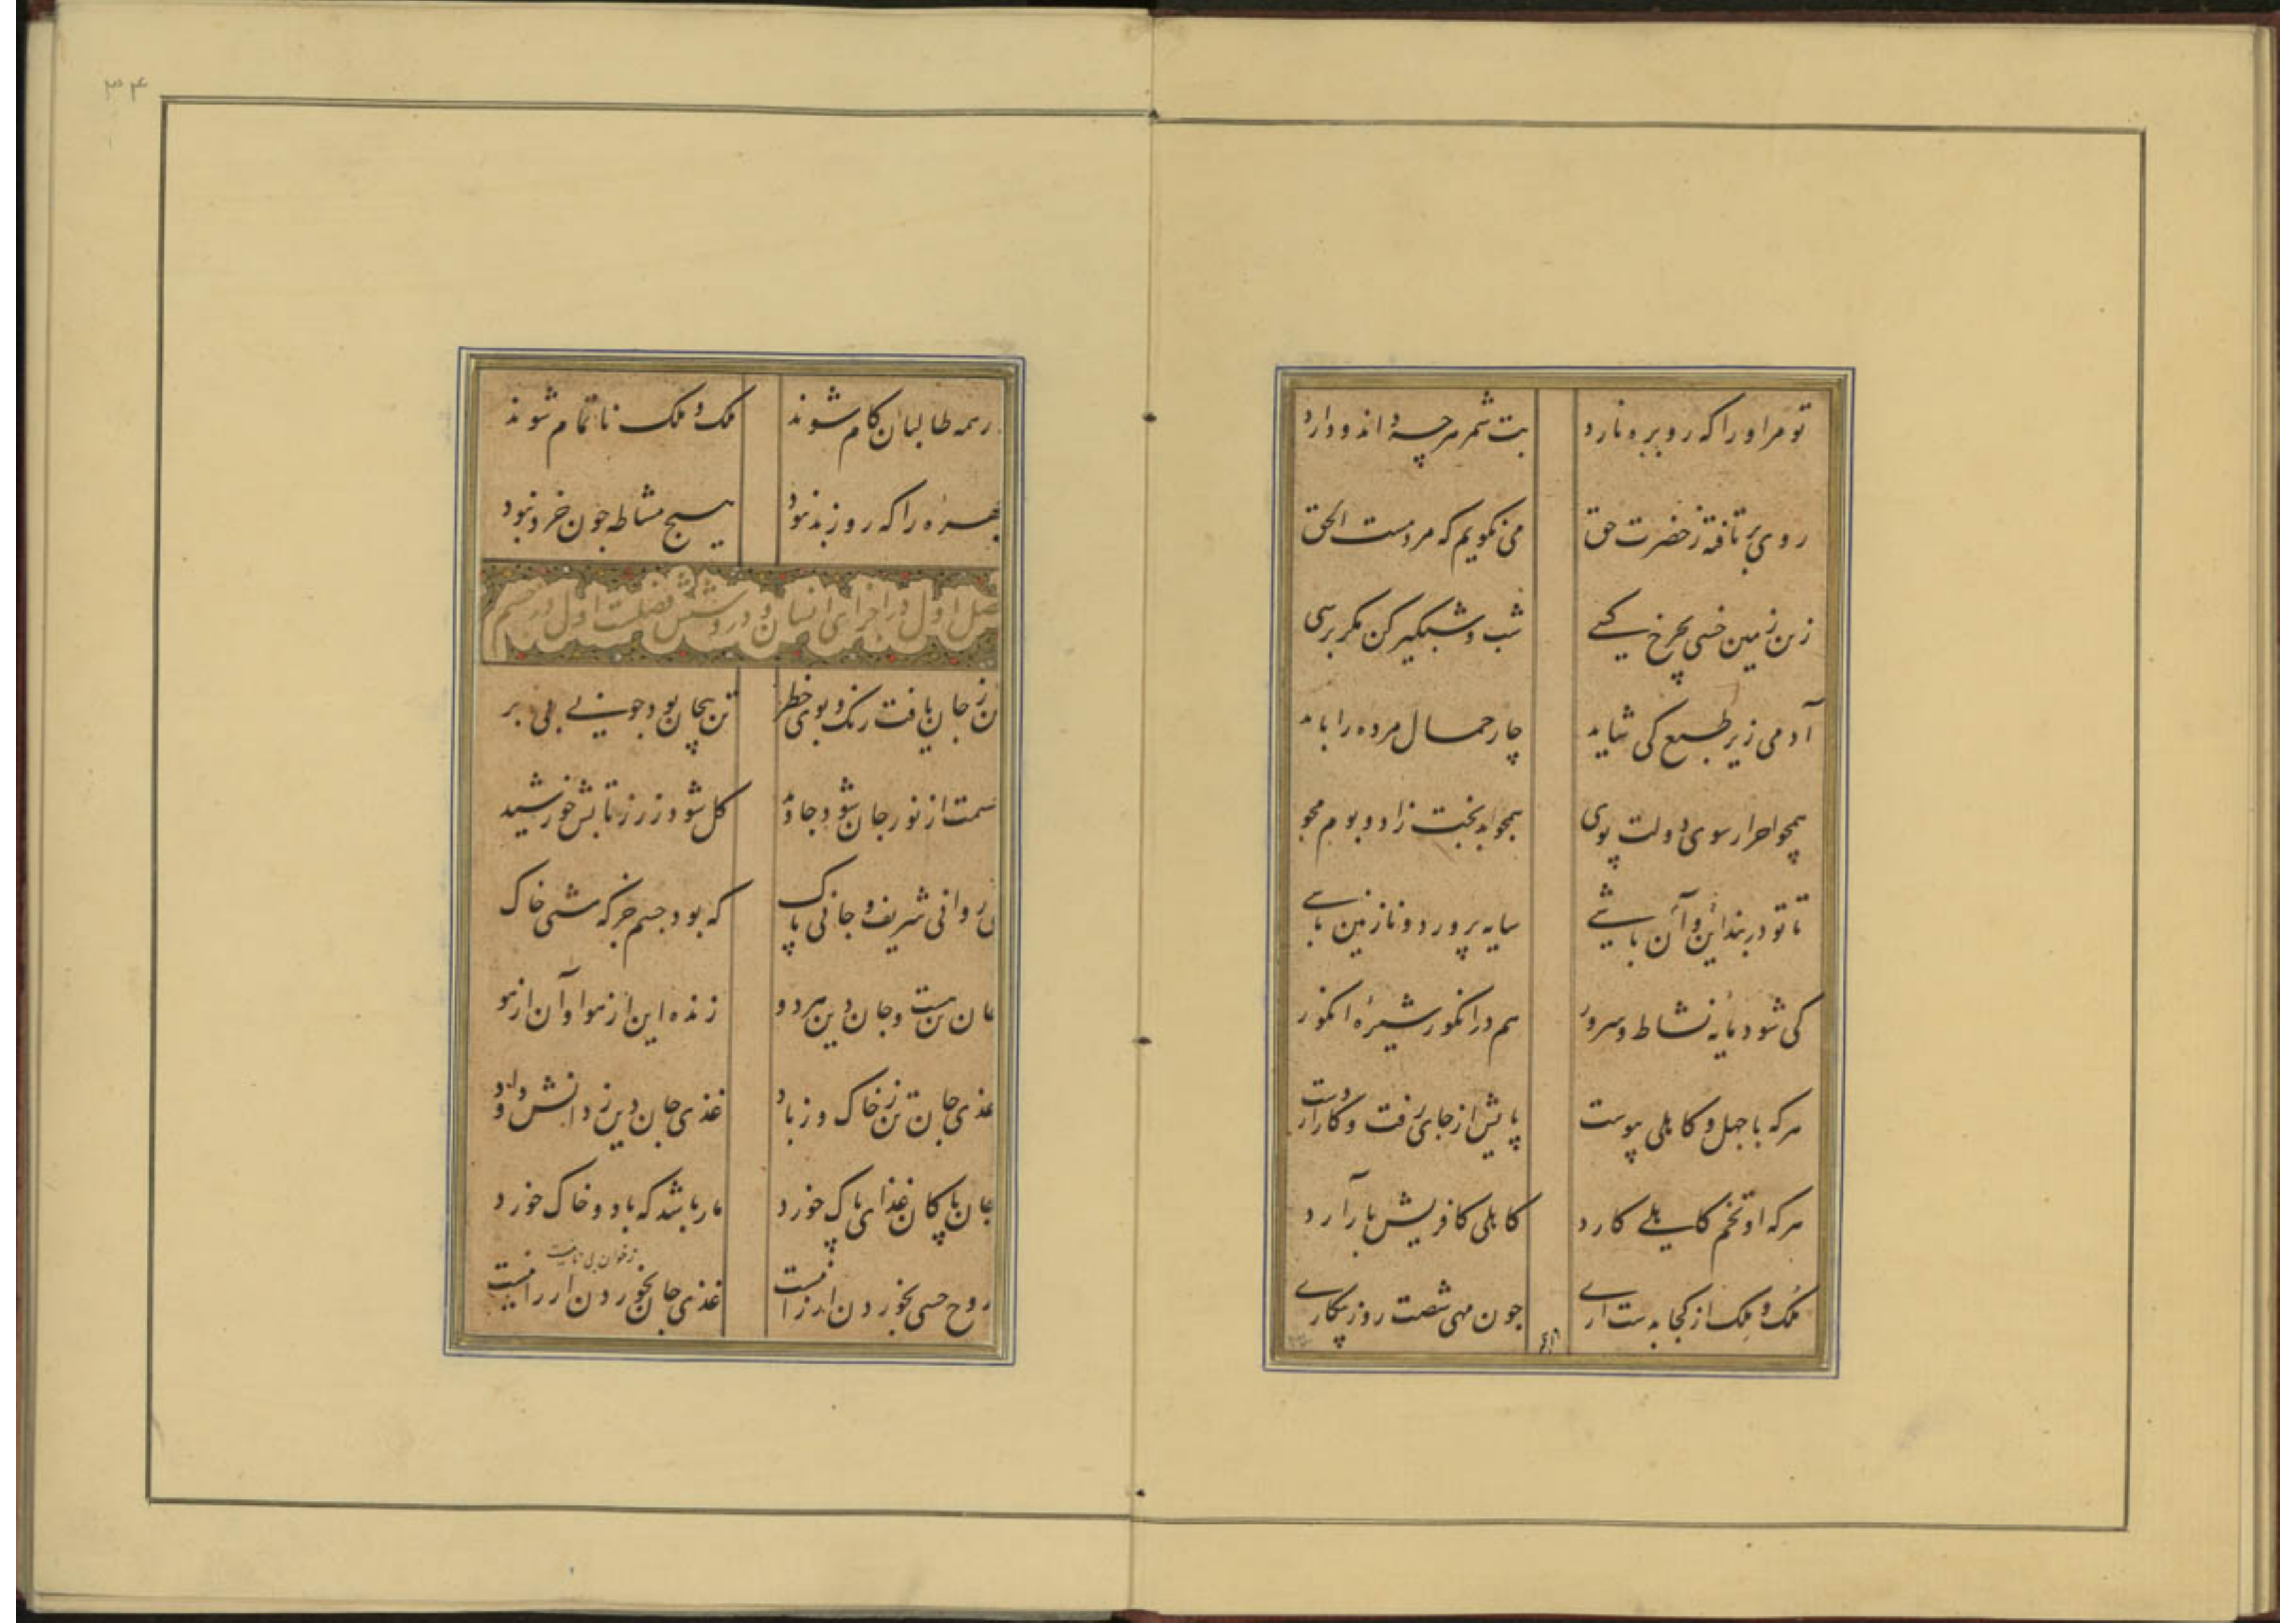 تو مر او را که رو برو نارد بت شمر هر چه داند و دارد
روی برتافته ز حضرت حق می نکویم که مردمست الحق
زین زمین خسی بچرخ کسی شب و شبکیر کن مکر برسی
آدمی زیر طبع کی شاید چار حمال مرده را باید
همچو احرار سوی دولت پوی همچو بدبخت زاد و بوم مجو
تا تو در بند این و آن باشی سایه پرورد و نازنین باشی
کی شود مایه نشاط و سرور هم در انکور شیره انکور
هر که با جهل و کاهلی پیوست پایش از جای رفت و کار از دست
هر که او تخم کاهلی کارد کاهلی کافریش بار آرد
ملک و ملک از کجا بدست آری چون مهی شصت روز بیکاری
ور همه
۳۴
ور همه طالبان کام شوند ملک و ملک ناتمام شوند
چهره را که روز بد نبود هیچ مشاطه چون خرد نبود
فصل اول در اجزای انسان و در وشش فصلست اول در جسم
تن ز جان یافت رنک و بوی خطر تن بیجان بود چو نی بی بر
جسمت از نور جان شود جاوید کل شود زر ز تابش خورشید
بی روانی شریف و جانی پاک که بود جسم جز که مشتی خاک
جان تن هست و جان دین هر دو زنده این از هوا و آن از هو
غذی جان تن ز خاک و ز باد غذی جان دین ز دانش و داد
جان پاکان غذای پاک خورد مار باشد که باد و خاک خورد
روح حسی بخوردن ارزانیست غذی جان بخوردن